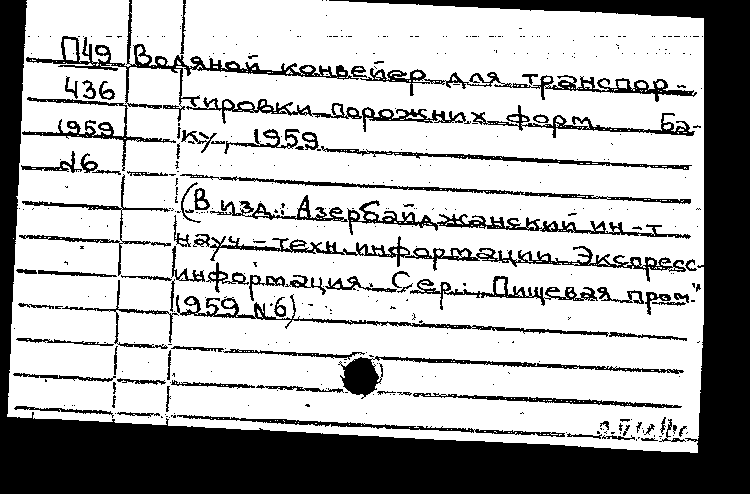 П49 Водяной конвейер для транспор-
436 тировки порожних форм. Ба-
1959 ку, 1959.
№6
(В изд.: Азербайджанский ин-т
науч-техн.информации. Экспресс-
информация. Сер.: „Пищевая пром."
1959 №6)